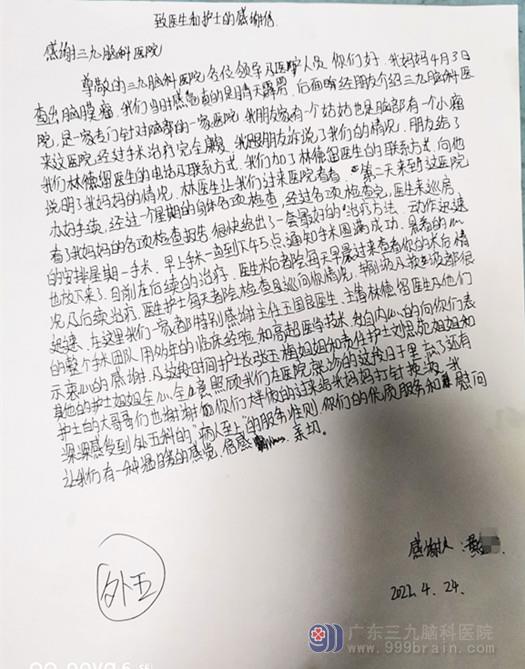 致医生和护士的感谢信
感谢三九脑科医院
尊敬的三九脑科医院各位领导及医护人员 你们好. 我妈妈4月3日
查出脑膜瘤. 我们当时感觉真的是晴天霹雳. 后面经朋友介绍三九脑科医
院. 是一家专门针对脑部的一家医院. 我朋友家有一个姑姑也是脑部有一个小瘤
来这医院. 经过手术治疗完全康复. 我跟朋友诉说了我们的情况. 朋友给了
我们林德留医生的电话及联系方式. 我们加了林德留医生的联系方式. 向他
说明了我妈妈的情况. 林医生让我们过来医院看看. 第二天来到这医院
办好手续. 经过一个星期的身体各项检查. 经过各项检查完. 医生来巡房.
看了我妈妈的各项检查报告 很快给出了一套最好的治疗方法. 动作迅速
的安排星期一手术. 早上手术一直到下午5点. 通知手术圆满成功. 悬着的心
也放下来了. 目前在后续的治疗. 医生术后都会每天早晨过来查看你的术后情
况及后续治疗. 医生护士每天都会检查且巡问你情况. 输液及换药都很
迅速. 在这里我们一家都特别感谢主任王国良医生. 主管林德留医生及他们
的整个手术团队. 用多年的临床经验和高超医学技术. 我由内心的向你们表
示衷心的感谢. 及这段时间护士长张玉梅姐姐和责任护士刘思驼姐姐和
其他的护士姐姐全心. 全意照顾我们. 在医院呆的这段日子里. 忘了还有
护士的大哥哥们也谢谢你们大半夜的过来给我妈妈打针 换液. 我
深深感受到外五科的“病人至上”的服务准则. 你们的优质服务和慰问
让我们有一种温暖的感觉. 倍感亲切.
感谢人 黄
2022. 4. 24.
外五
999
广东三九脑科医院
www.999brain.com